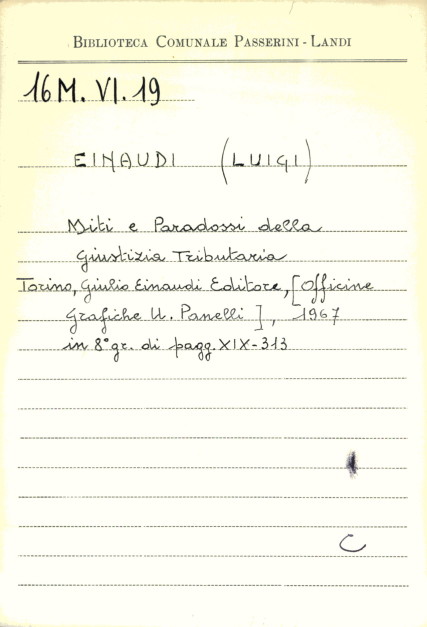 BIBLIOTECA COMUNALE PASSERINI - LANDI
16 M. VI. 19
EINAUDI (LUIGI)
Miti e Paradossi della
Giustizia Tributaria
Torino, Giulio Einaudi Editore, [Officine
Grafiche U. Panelli], 1967
in 8° gr. di pagg. XIX-313
C